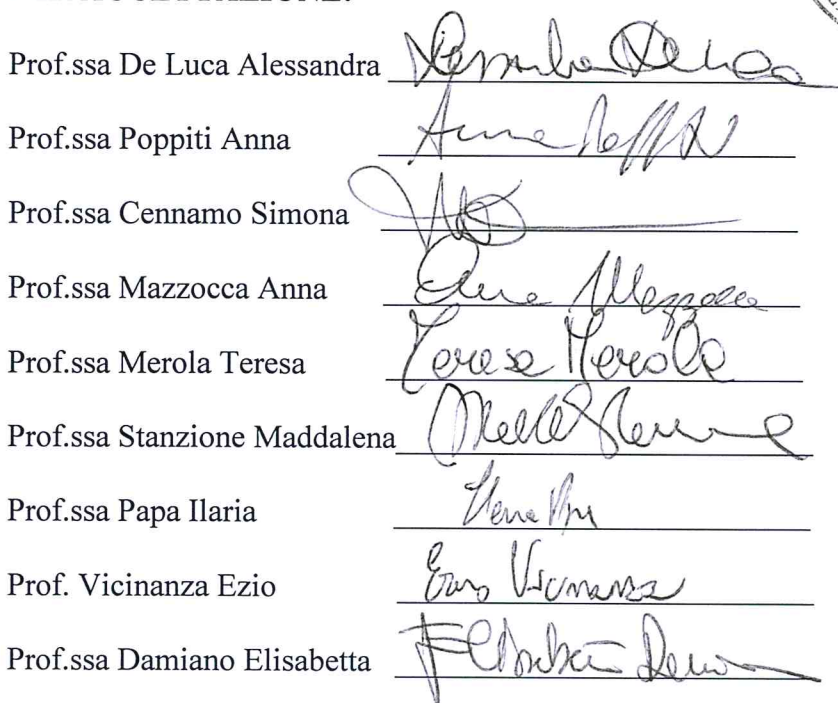 Prof.ssa De Luca Alessandra Alessandra De Luca
Prof.ssa Poppiti Anna Anna
Prof.ssa Cennamo Simona
Prof.ssa Mazzocca Anna Anna Mazzocca
Prof.ssa Merola Teresa Teresa Merola
Prof.ssa Stanzione Maddalena
Prof.ssa Papa Ilaria Ilaria
Prof. Vicinanza Ezio Ezio Vicinanza
Prof.ssa Damiano Elisabetta Elisabetta